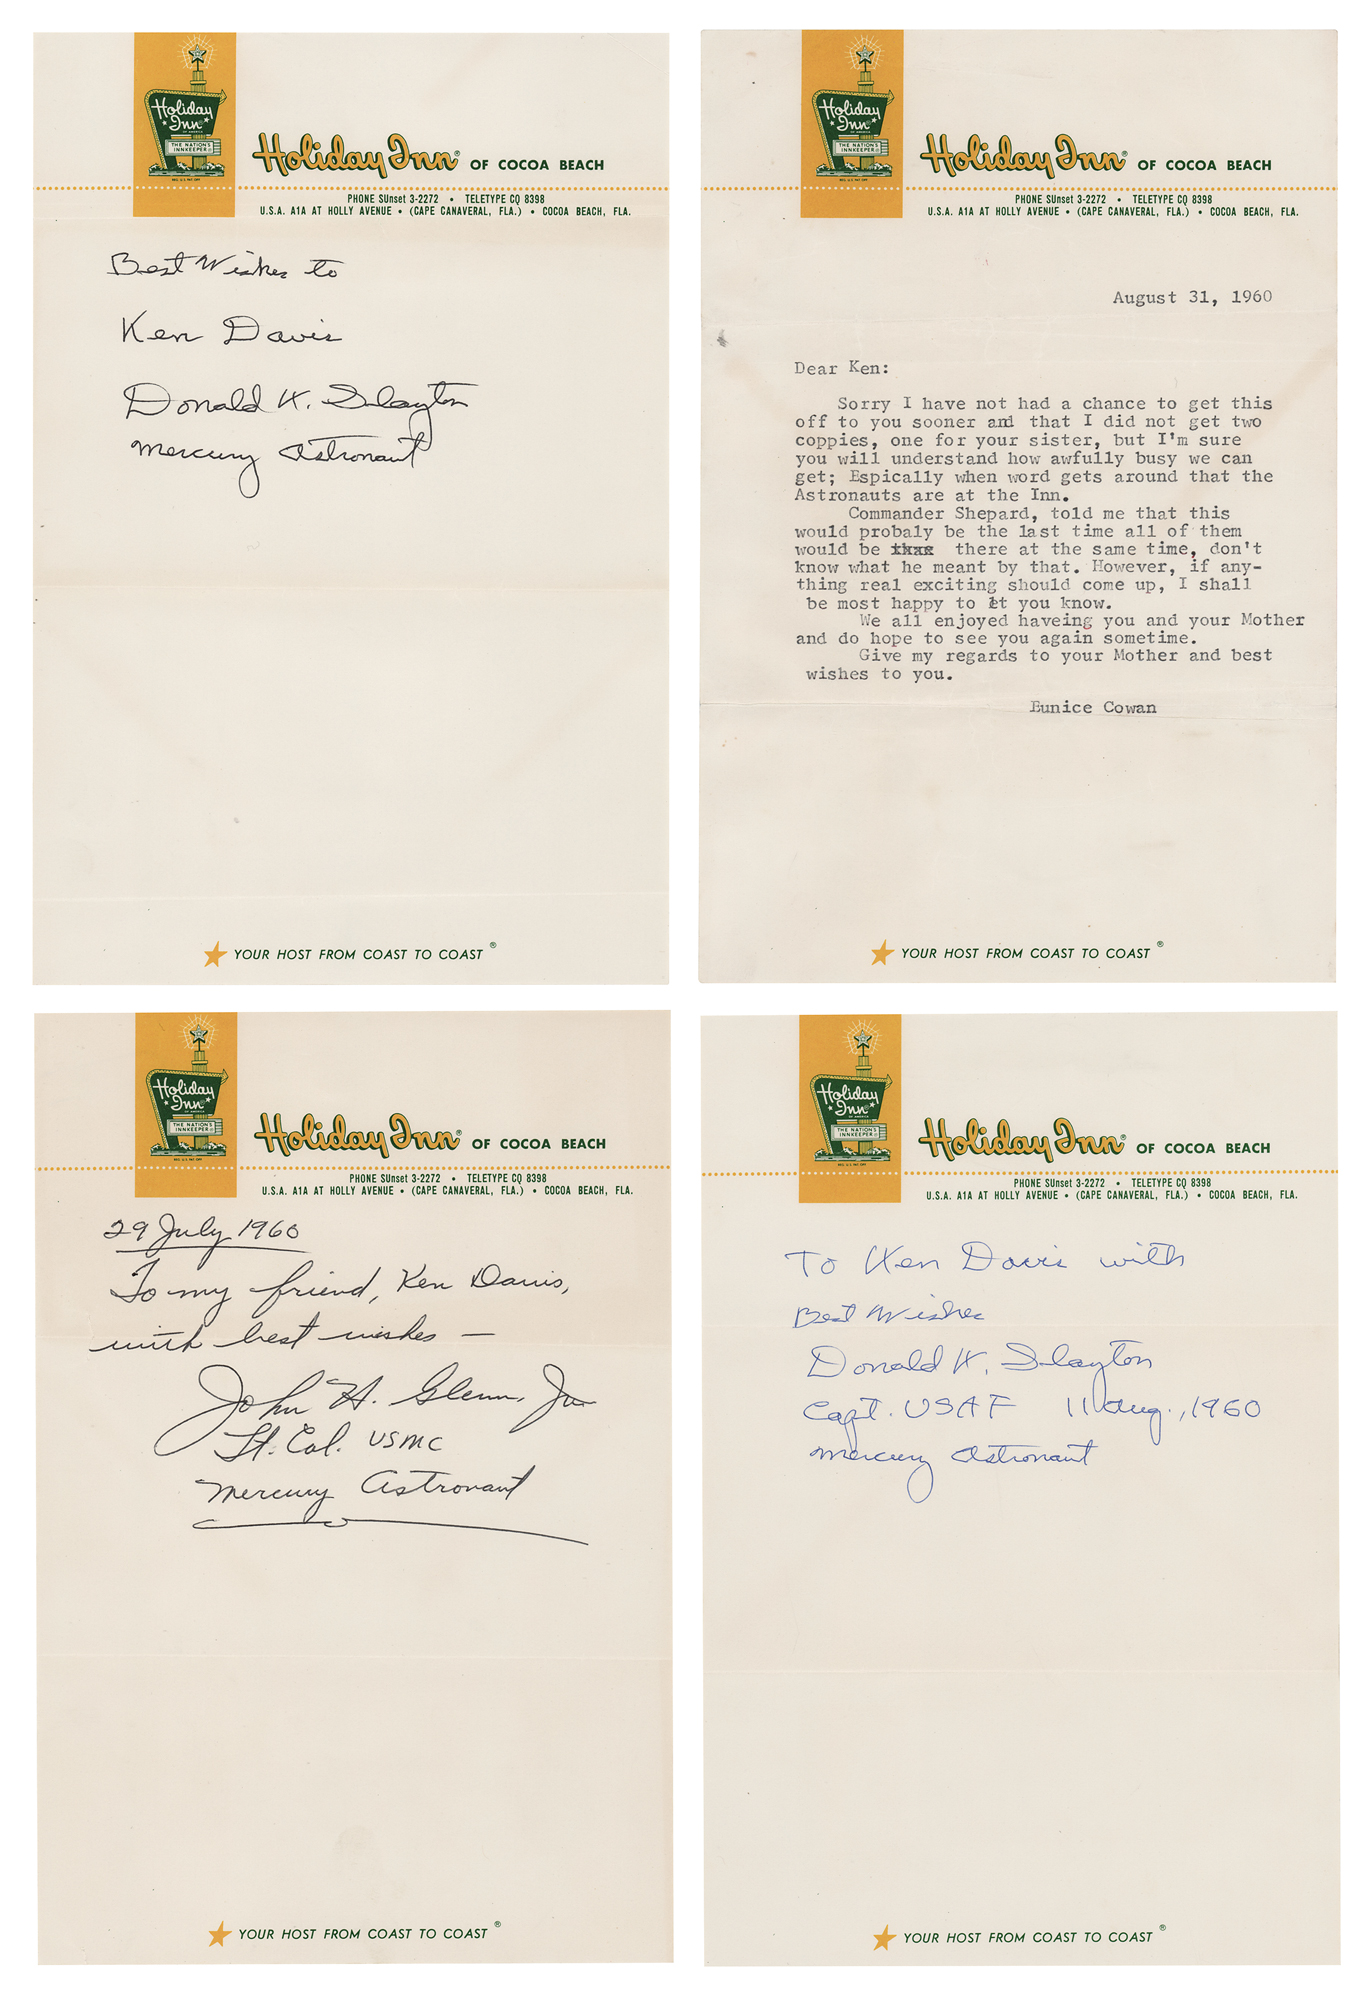 Holiday
Inn®
OF AMERICA
THE NATION'S
INNKEEPER
Holiday Inn® OF COCOA BEACH
PHONE SUnset 3-2272 • TELETYPE CQ 8398
U.S.A. A1A AT HOLLY AVENUE • (CAPE CANAVERAL, FLA.) • COCOA BEACH, FLA.
Best Wishes to
Ken Davis
Donald K. Slayton
Mercury Astronaut
YOUR HOST FROM COAST TO COAST ®
Holiday
Inn®
OF AMERICA
THE NATION'S
INNKEEPER
Holiday Inn® OF COCOA BEACH
PHONE SUnset 3-2272 • TELETYPE CQ 8398
U.S.A. A1A AT HOLLY AVENUE • (CAPE CANAVERAL, FLA.) • COCOA BEACH, FLA.
August 31, 1960
Dear Ken:
Sorry I have not had a chance to get this
off to you sooner and that I did not get two
coppies, one for your sister, but I'm sure
you will understand how awfully busy we can
get; Espically when word gets around that the
Astronauts are at the Inn.
Commander Shepard, told me that this
would probaly be the last time all of them
would be there at the same time, don't
know what he meant by that. However, if any-
thing real exciting should come up, I shall
be most happy to let you know.
We all enjoyed haveing you and your Mother
and do hope to see you again sometime.
Give my regards to your Mother and best
wishes to you.
Eunice Cowan
YOUR HOST FROM COAST TO COAST ®
Holiday
Inn®
OF AMERICA
THE NATION'S
INNKEEPER
Holiday Inn® OF COCOA BEACH
PHONE SUnset 3-2272 • TELETYPE CQ 8398
U.S.A. A1A AT HOLLY AVENUE • (CAPE CANAVERAL, FLA.) • COCOA BEACH, FLA.
29 July 1960
To my friend, Ken Davis,
with best wishes —
John H. Glenn, Jr.
Lt. Col. USMC
Mercury Astronaut
YOUR HOST FROM COAST TO COAST ®
Holiday
Inn®
OF AMERICA
THE NATION'S
INNKEEPER
Holiday Inn® OF COCOA BEACH
PHONE SUnset 3-2272 • TELETYPE CQ 8398
U.S.A. A1A AT HOLLY AVENUE • (CAPE CANAVERAL, FLA.) • COCOA BEACH, FLA.
To Ken Davis with
Best Wishes
Donald K. Slayton
Capt. USAF 11 Aug., 1960
Mercury Astronaut
YOUR HOST FROM COAST TO COAST ®